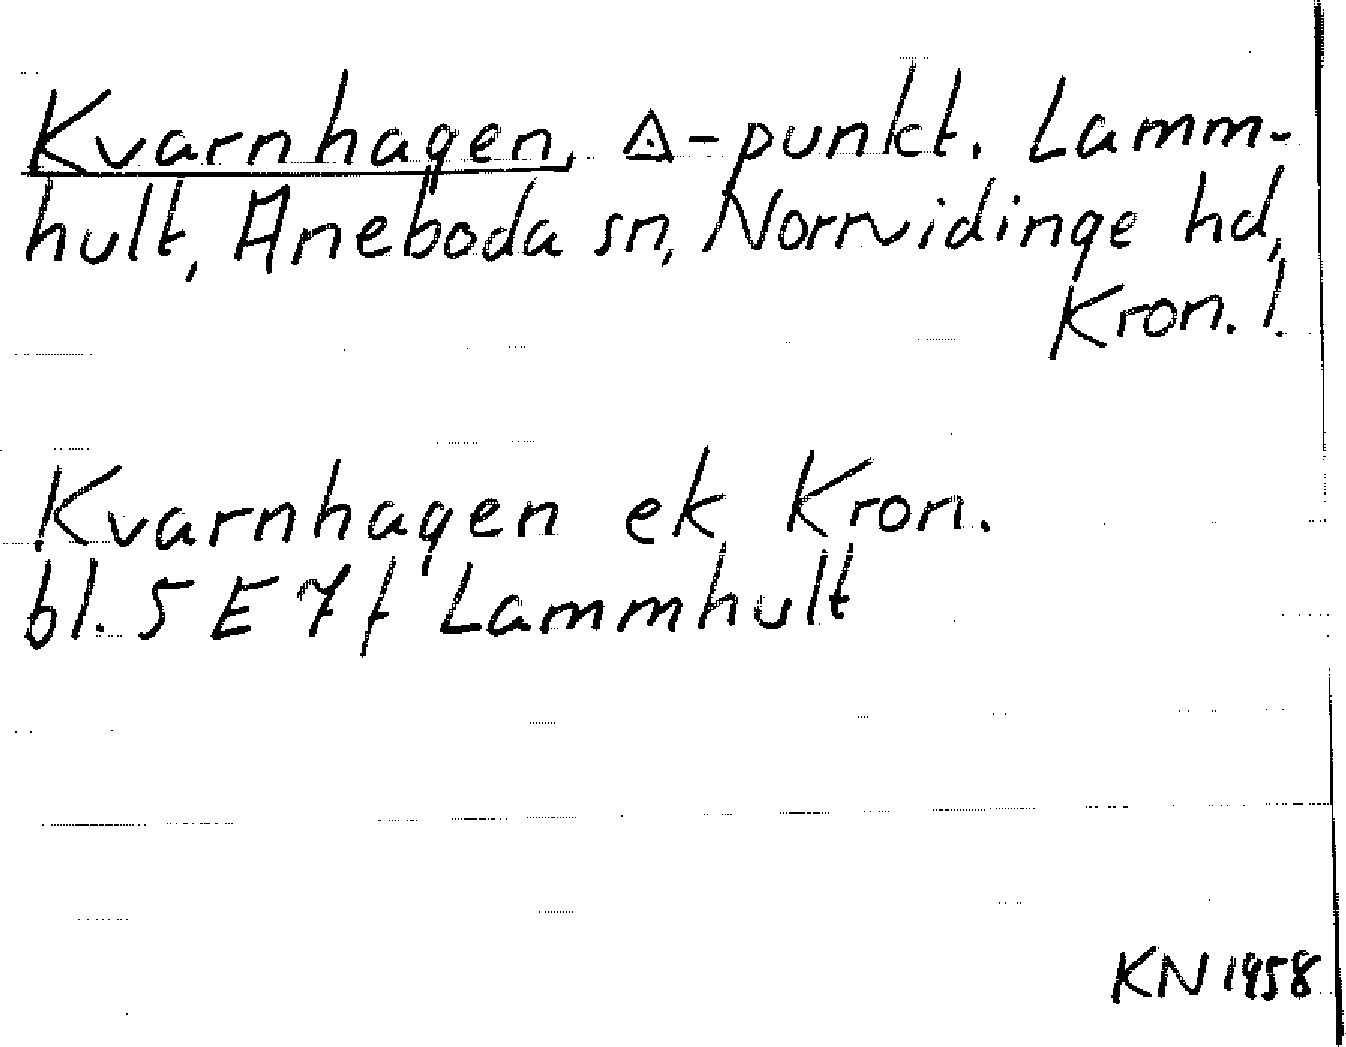 Kvarnhagen, △-punkt. Lamm-
hult, Aneboda sn, Norrvidinge hd,
Kron. l.
Kvarnhagen ek Kron.
bl. 5 E 7 f Lammhult
KN 1958